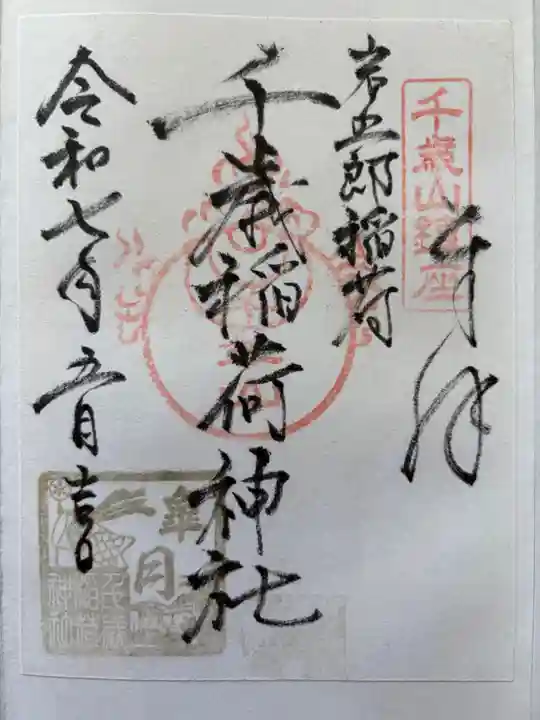 奉拝
千歳山鎮座
岩五郎稲荷
千歳稲荷神社
令和七年五月吉日
皐月
千歳稲荷神社